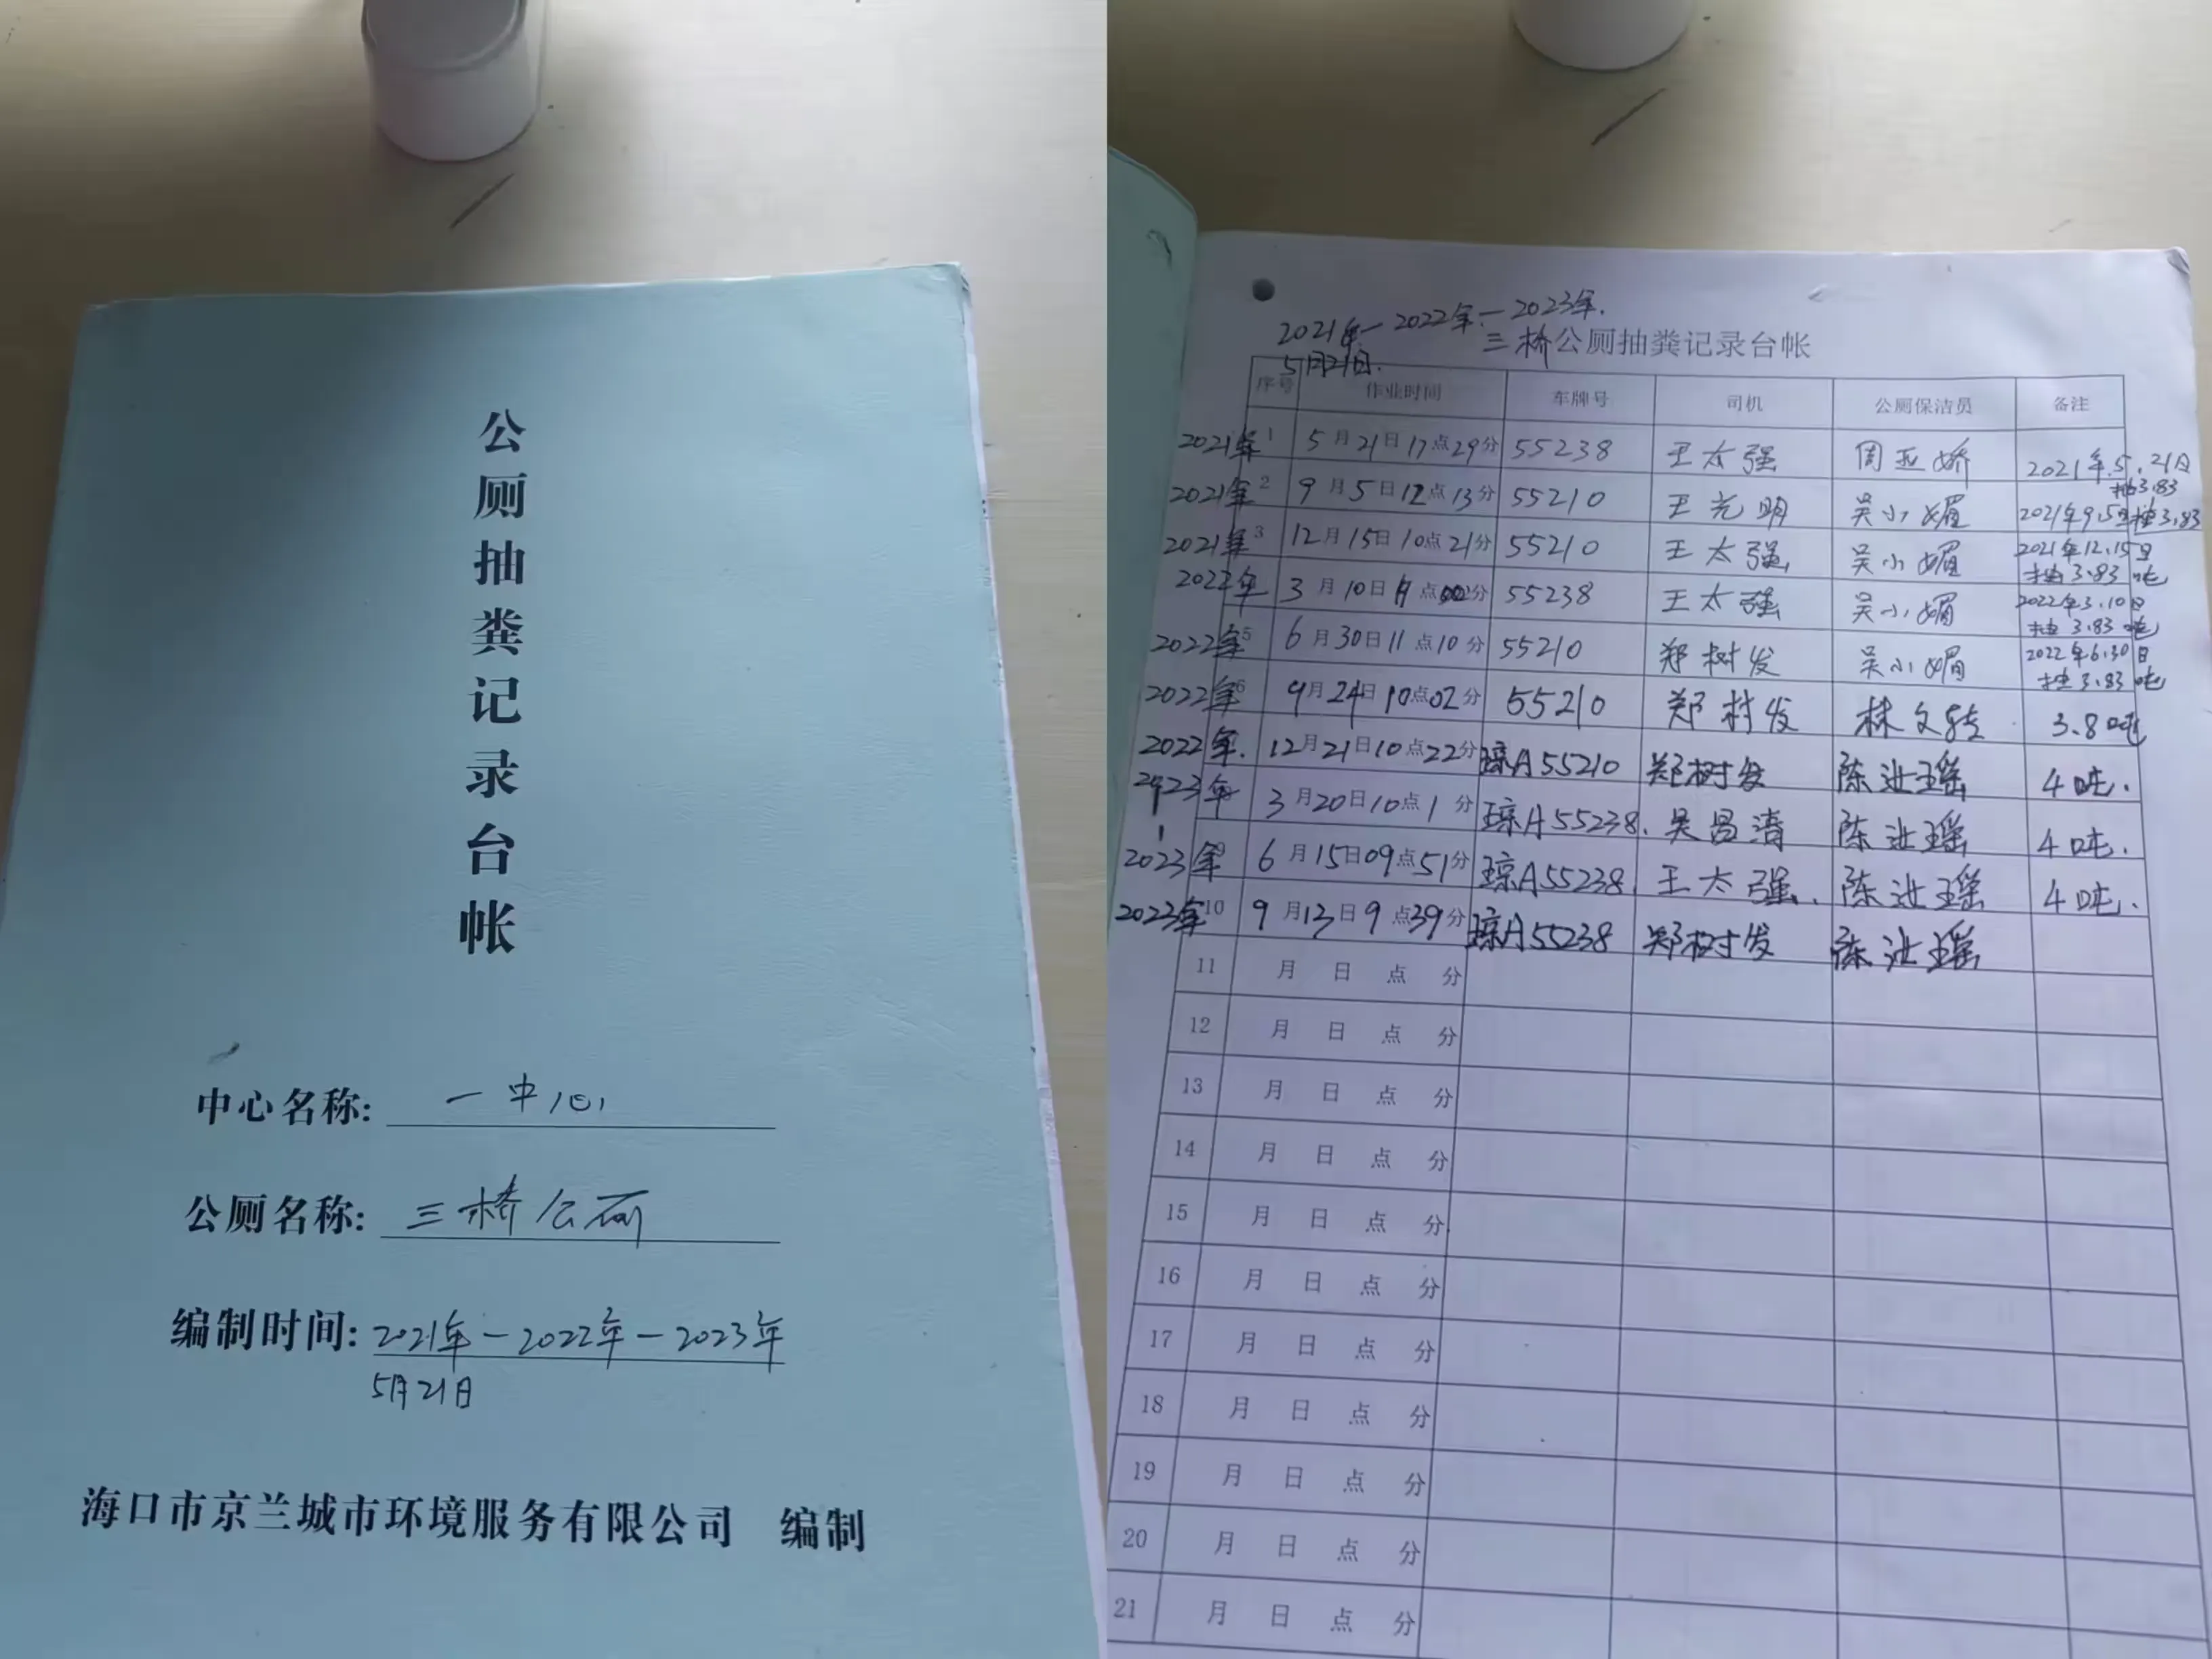 公厕抽粪记录台帐
中心名称: 一中心
公厕名称: 三桥公厕
编制时间: 2021年-2022年-2023年
5月21日
海口市京兰城市环境服务有限公司 编制
2021年-2022年-2023年.
5月21日.
三桥公厕抽粪记录台帐
序号 作业时间 车牌号 司机 公厕保洁员 备注
2021年 1 5月21日17点29分 55238 王太强 周亚娇 2021年5.21日抽3.83
2021年 2 9月5日12点13分 55210 王光明 吴小媚 2021年9.5日抽3.83
2021年 3 12月15日10点21分 55210 王太强 吴小媚 2021年12.15日抽3.83吨
2022年 3月10日 点 分 55238 王太强 吴小媚 2022年3.10日抽3.83吨
2022年 5 6月30日11点10分 55210 郑树发 吴小媚 2022年6.30日抽3.83吨
2022年 6 9月24日10点02分 55210 郑村发 林文 3.8吨
2022年. 12月21日10点22分 琼A55210 郑树发 陈 瑶 4吨.
2023年 3月20日10点1分 琼A55238. 吴昌清 陈 瑶 4吨.
2023年 9 6月15日09点51分 琼A55238. 王太强. 陈 瑶 4吨.
2023年 10 9月13日9点39分 琼A55238 郑树发 陈 瑶
11 月 日 点 分
12 月 日 点 分
13 月 日 点 分
14 月 日 点 分
15 月 日 点 分
16 月 日 点 分
17 月 日 点 分
18 月 日 点 分
19 月 日 点 分
20 月 日 点 分
21 月 日 点 分